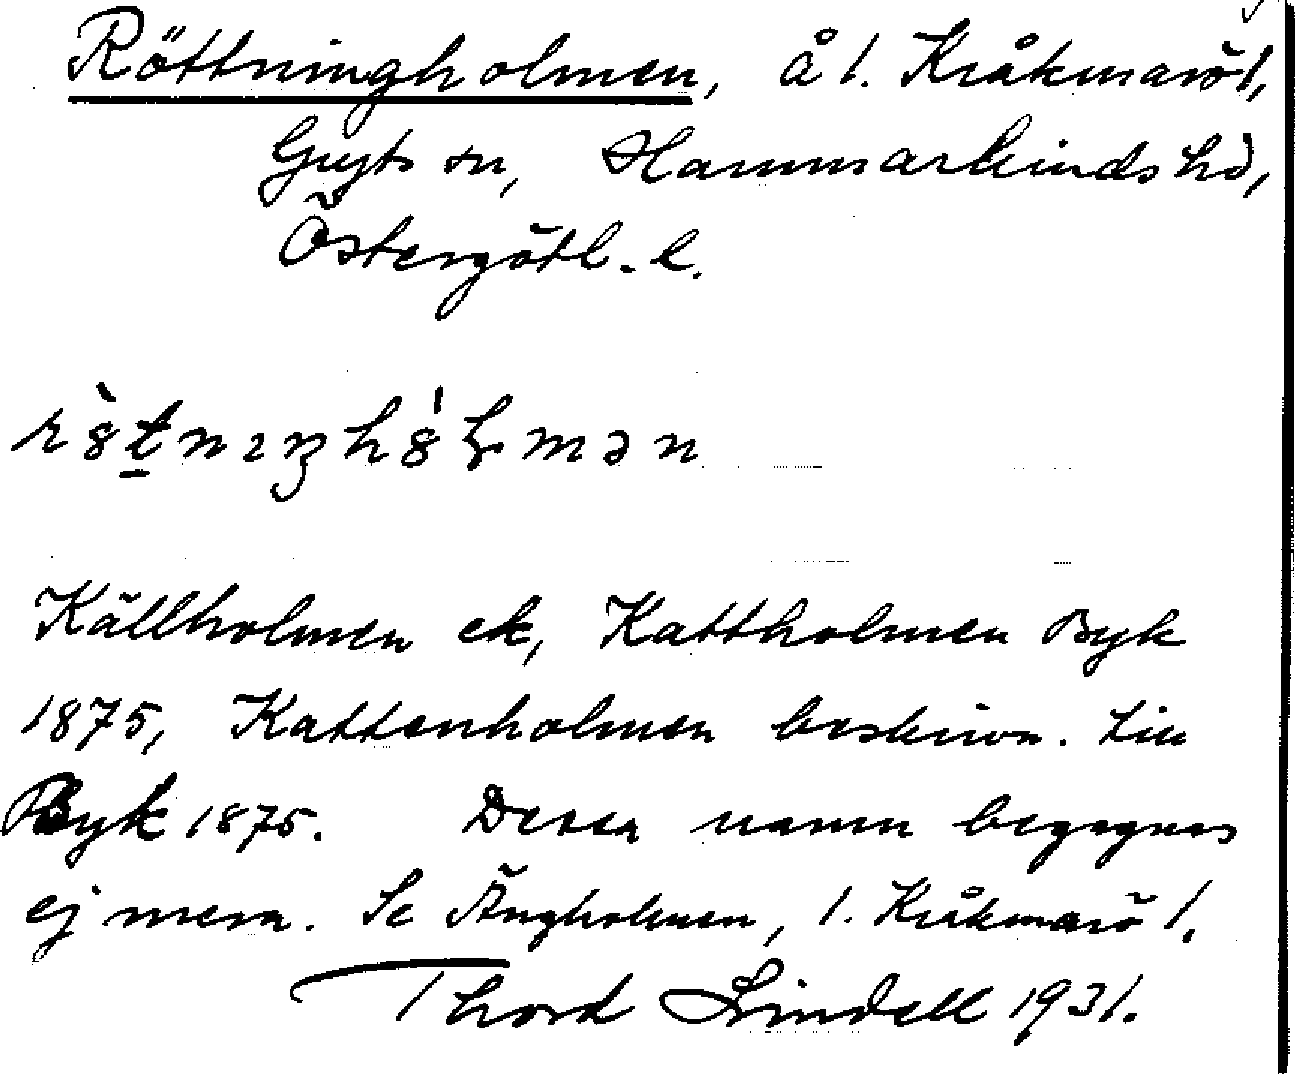 Röttningholmen, å 1. Kråkmarö 1,
Gryts sn, Hammarkinds hd,
Östergötl. l.
rö̀tnɪŋhó̤lmən
Källholmen ek, Kattholmen Byk
1875, Kattenholmen beskrivn. till
Byk 1875. Dessa namn begagnas
ej mera. Se Ängholmen, 1. Kråkmarö 1.
Thord Lindell 1931.